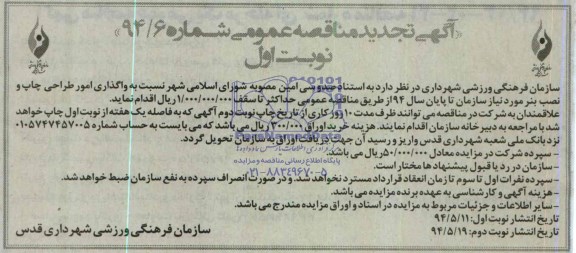 «آگهی تجدید مناقصه عمومی شماره ۹۴/۶»
نوبت اول
سازمان فرهنگی ورزشی شهرداری در نظر دارد به استناد مصوبه شورای اسلامی شهر نسبت به واگذاری امور طراحی چاپ و
نصب بنر مورد نیاز سازمان تا پایان سال ۹۴ از طریق مناقصه عمومی حداکثر تا سقف ۱/۰۰۰/۰۰۰/۰۰۰ ریال اقدام نماید.
علاقمندان به شرکت در مناقصه می توانند ظرف مدت ۱۰ روز کاری از تاریخ چاپ نوبت دوم آگهی که به فاصله یک هفته از نوبت اول چاپ خواهد
شد با مراجعه به دبیرخانه سازمان اقدام نمایند. هزینه خرید اوراق ۳۰۰/۰۰۰ ریال می باشد که می بایست به حساب شماره ۰۱۰۵۷۴۷۴۵۷۰۰۵
نزد بانک ملی شعبه شهرداری قدس واریز و رسید آن جهت دریافت اوراق به سازمان تحویل گردد.
- سپرده شرکت در مزایده معادل ۵۰/۰۰۰/۰۰۰ ریال می باشد.
- سازمان در رد یا قبول پیشنهاد ها مختار است.
- سپرده نفرات اول تا سوم تا زمان انعقاد قرارداد مسترد نخواهد شد. و در صورت انصراف سپرده به نفع سازمان ضبط خواهد شد.
- هزینه آگهی و کارشناسی به عهده برنده مزایده می باشد.
- سایر اطلاعات و جزئیات مربوط به مزایده در اسناد و اوراق مزایده مندرج می باشد.
تاریخ انتشار نوبت اول: ۹۴/۵/۱۱
تاریخ انتشار نوبت دوم: ۹۴/۵/۱۹
سازمان فرهنگی ورزشی شهرداری قدس
پایگاه اطلاع رسانی مناقصه و مزایده
۰۲۱-۸۸۳۴۹۶۷۰-۵